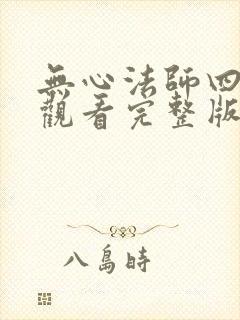 無心法師四
觀看完整版
八島時